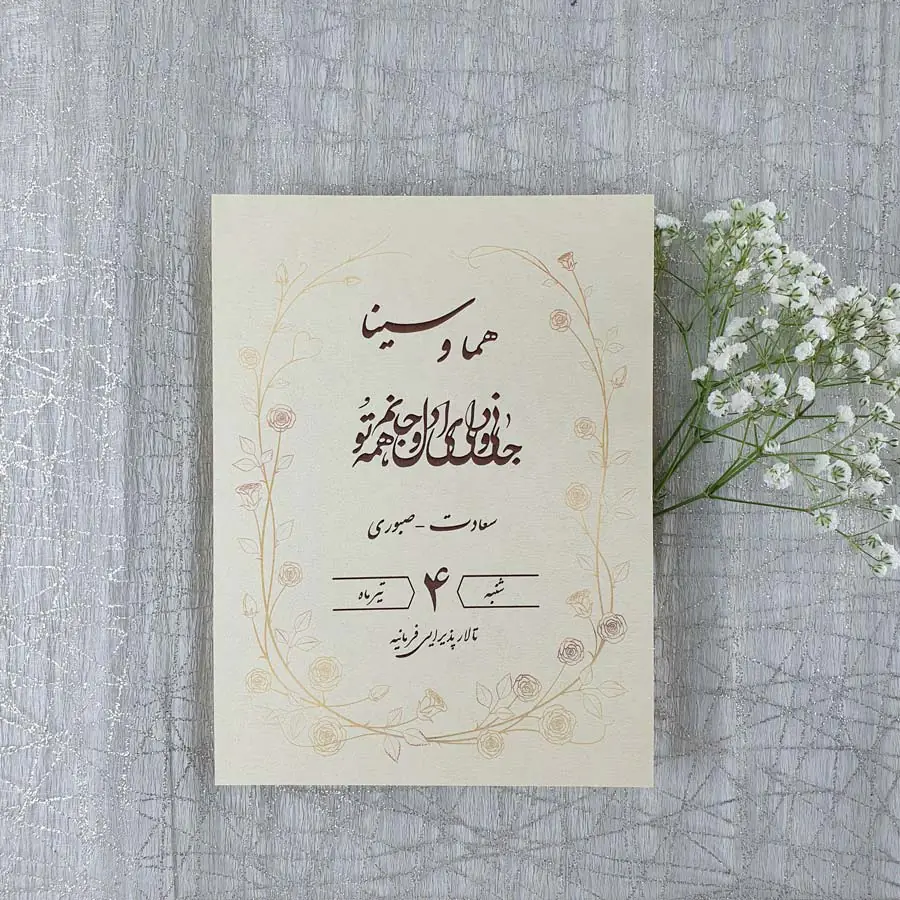 هما و سینا
جان و دلم ای دل و جانم همه تو
سعادت - صبوری
شنبه ۴ تیر ماه
تالار پذیرایی فرمانیه